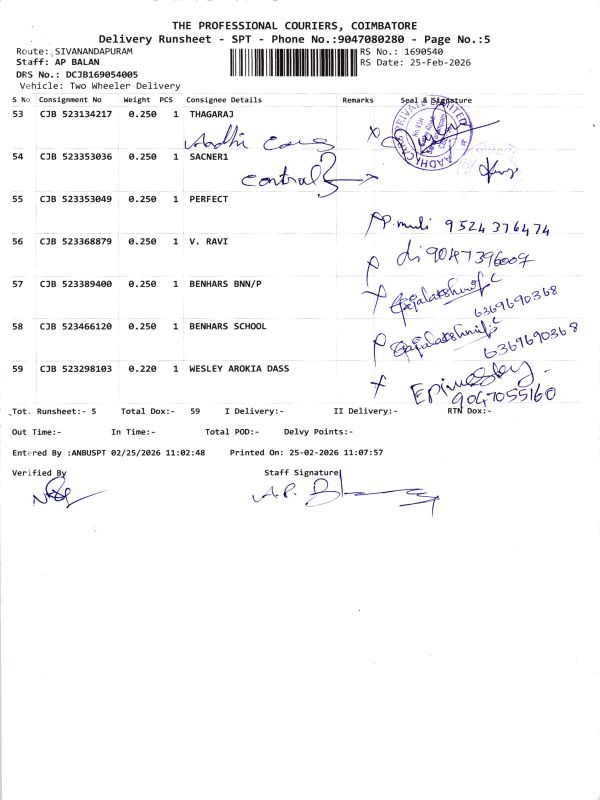 THE PROFESSIONAL COURIERS, COIMBATORE
Delivery Runsheet - SPT - Phone No.:9047080280 - Page No.:5
Route: SIVANANDAPURAM RS No.: 1690540
Staff: AP BALAN RS Date: 25-Feb-2026
DRS No.: DCJB169054005
Vehicle: Two Wheeler Delivery
S No Consignment No Weight PCS Consignee Details Remarks Seal & Signature
53 CJB 523134217 0.250 1 THAGARAJ
Aadhi Cars
54 CJB 523353036 0.250 1 SACNER1
Central
55 CJB 523353049 0.250 1 PERFECT
9524376474
56 CJB 523368879 0.250 1 V. RAVI
9047396007
57 CJB 523389400 0.250 1 BENHARS BNN/P
Rajalakshmi
6369690368
58 CJB 523466120 0.250 1 BENHARS SCHOOL
Rajalakshmi
6369690368
59 CJB 523298103 0.220 1 WESLEY AROKIA DASS
9047055160
Tot. Runsheet:- 5 Total Dox:- 59 I Delivery:- II Delivery:- RTN Dox:-
Out Time:- In Time:- Total POD:- Delvy Points:-
Entered By :ANBUSPT 02/25/2026 11:02:48 Printed On: 25-02-2026 11:07:57
Verified By Staff Signature
A.P.